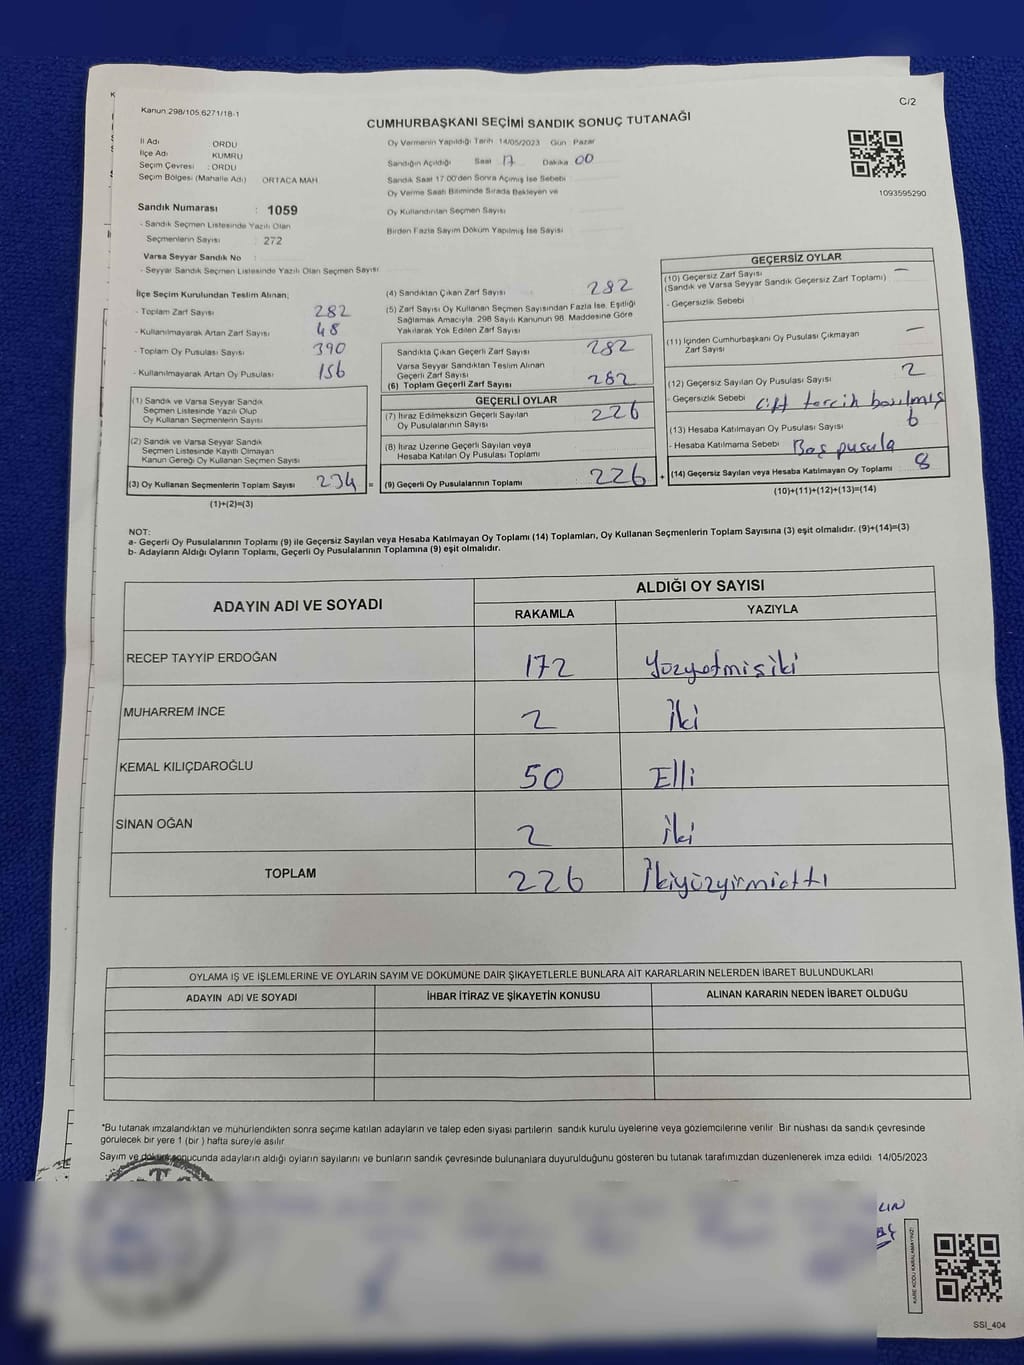 Kanun 298/105 6271/18-1
C/2
CUMHURBAŞKANI SEÇİMİ SANDIK SONUÇ TUTANAĞI
İl Adı ORDU
İlçe Adı KUMRU
Seçim Çevresi : ORDU
Seçim Bölgesi (Mahalle Adı) ORTACA MAH
Sandık Numarası : 1059
- Sandık Seçmen Listesinde Yazılı Olan
Seçmenlerin Sayısı : 272
Varsa Seyyar Sandık No :
- Seyyar Sandık Seçmen Listesinde Yazılı Olan Seçmen Sayısı
Oy Vermenin Yapıldığı Tarih 14/05/2023 Gün Pazar
Sandığın Açıldığı Saat 17 Dakika 00
Sandık Saat 17 00'den Sonra Açılmış İse Sebebi
Oy Verme Saati Bitiminde Sırada Bekleyen ve
Oy Kullandırılan Seçmen Sayısı
Birden Fazla Sayım Döküm Yapılmış İse Sayısı
1093595290
İlçe Seçim Kurulundan Teslim Alınan;
- Toplam Zarf Sayısı 282
- Kullanılmayarak Artan Zarf Sayısı 48
- Toplam Oy Pusulası Sayısı 390
- Kullanılmayarak Artan Oy Pusulası 156
(1) Sandık ve Varsa Seyyar Sandık
Seçmen Listesinde Yazılı Olup
Oy Kullanan Seçmenlerin Sayısı
(2) Sandık ve Varsa Seyyar Sandık
Seçmen Listesinde Kayıtlı Olmayan
Kanun Gereği Oy Kullanan Seçmen Sayısı
(3) Oy Kullanan Seçmenlerin Toplam Sayısı 234 =
(1)+(2)=(3)
(4) Sandıktan Çıkan Zarf Sayısı 282
(5) Zarf Sayısı Oy Kullanan Seçmen Sayısından Fazla İse, Eşitliği
Sağlamak Amacıyla; 298 Sayılı Kanunun 98. Maddesine Göre
Yakılarak Yok Edilen Zarf Sayısı
Sandıkta Çıkan Geçerli Zarf Sayısı 282
Varsa Seyyar Sandıktan Teslim Alınan
Geçerli Zarf Sayısı
(6) Toplam Geçerli Zarf Sayısı 282
GEÇERLİ OYLAR
(7) İtiraz Edilmeksizin Geçerli Sayılan
Oy Pusulalarının Sayısı 226
(8) İtiraz Üzerine Geçerli Sayılan veya
Hesaba Katılan Oy Pusulası Toplamı
(9) Geçerli Oy Pusulalarının Toplamı 226 +
GEÇERSİZ OYLAR
(10) Geçersiz Zarf Sayısı —
(Sandık ve Varsa Seyyar Sandık Geçersiz Zarf Toplamı)
- Geçersizlik Sebebi
(11) İçinden Cumhurbaşkanı Oy Pusulası Çıkmayan
Zarf Sayısı —
(12) Geçersiz Sayılan Oy Pusulası Sayısı 2
- Geçersizlik Sebebi çift tercih basılmış
(13) Hesaba Katılmayan Oy Pusulası Sayısı 6
- Hesaba Katılmama Sebebi Boş pusula
(14) Geçersiz Sayılan veya Hesaba Katılmayan Oy Toplamı 8
(10)+(11)+(12)+(13)=(14)
NOT:
a- Geçerli Oy Pusulalarının Toplamı (9) ile Geçersiz Sayılan veya Hesaba Katılmayan Oy Toplamı (14) Toplamları, Oy Kullanan Seçmenlerin Toplam Sayısına (3) eşit olmalıdır. (9)+(14)=(3)
b- Adayların Aldığı Oyların Toplamı, Geçerli Oy Pusulalarının Toplamına (9) eşit olmalıdır.
ADAYIN ADI VE SOYADI ALDIĞI OY SAYISI
RAKAMLA YAZIYLA
RECEP TAYYİP ERDOĞAN 172 Yüzyetmişiki
MUHARREM İNCE 2 İki
KEMAL KILIÇDAROĞLU 50 Elli
SİNAN OĞAN 2 iki
TOPLAM 226 İkiyüzyirmialtı
OYLAMA İŞ VE İŞLEMLERİNE VE OYLARIN SAYIM VE DÖKÜMÜNE DAİR ŞİKAYETLERLE BUNLARA AİT KARARLARIN NELERDEN İBARET BULUNDUKLARI
ADAYIN ADI VE SOYADI İHBAR İTİRAZ VE ŞİKAYETİN KONUSU ALINAN KARARIN NEDEN İBARET OLDUĞU
*Bu tutanak imzalandıktan ve mühürlendikten sonra seçime katılan adayların ve talep eden siyasi partilerin sandık kurulu üyelerine veya gözlemcilerine verilir Bir nüshası da sandık çevresinde
görülecek bir yere 1 (bir ) hafta süreyle asılır
Sayım ve döküm sonucunda adayların aldığı oyların sayılarını ve bunların sandık çevresinde bulunanlara duyurulduğunu gösteren bu tutanak tarafımızdan düzenlenerek imza edildi 14/05/2023
KARE KODU KARALAMAYINIZ!
SSI_404